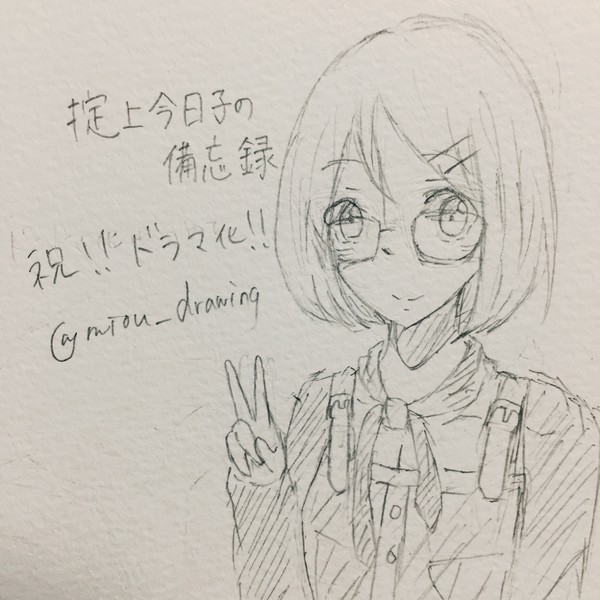 掟上今日子の
備忘録
祝!!ドラマ化!!
@mtou_drawing